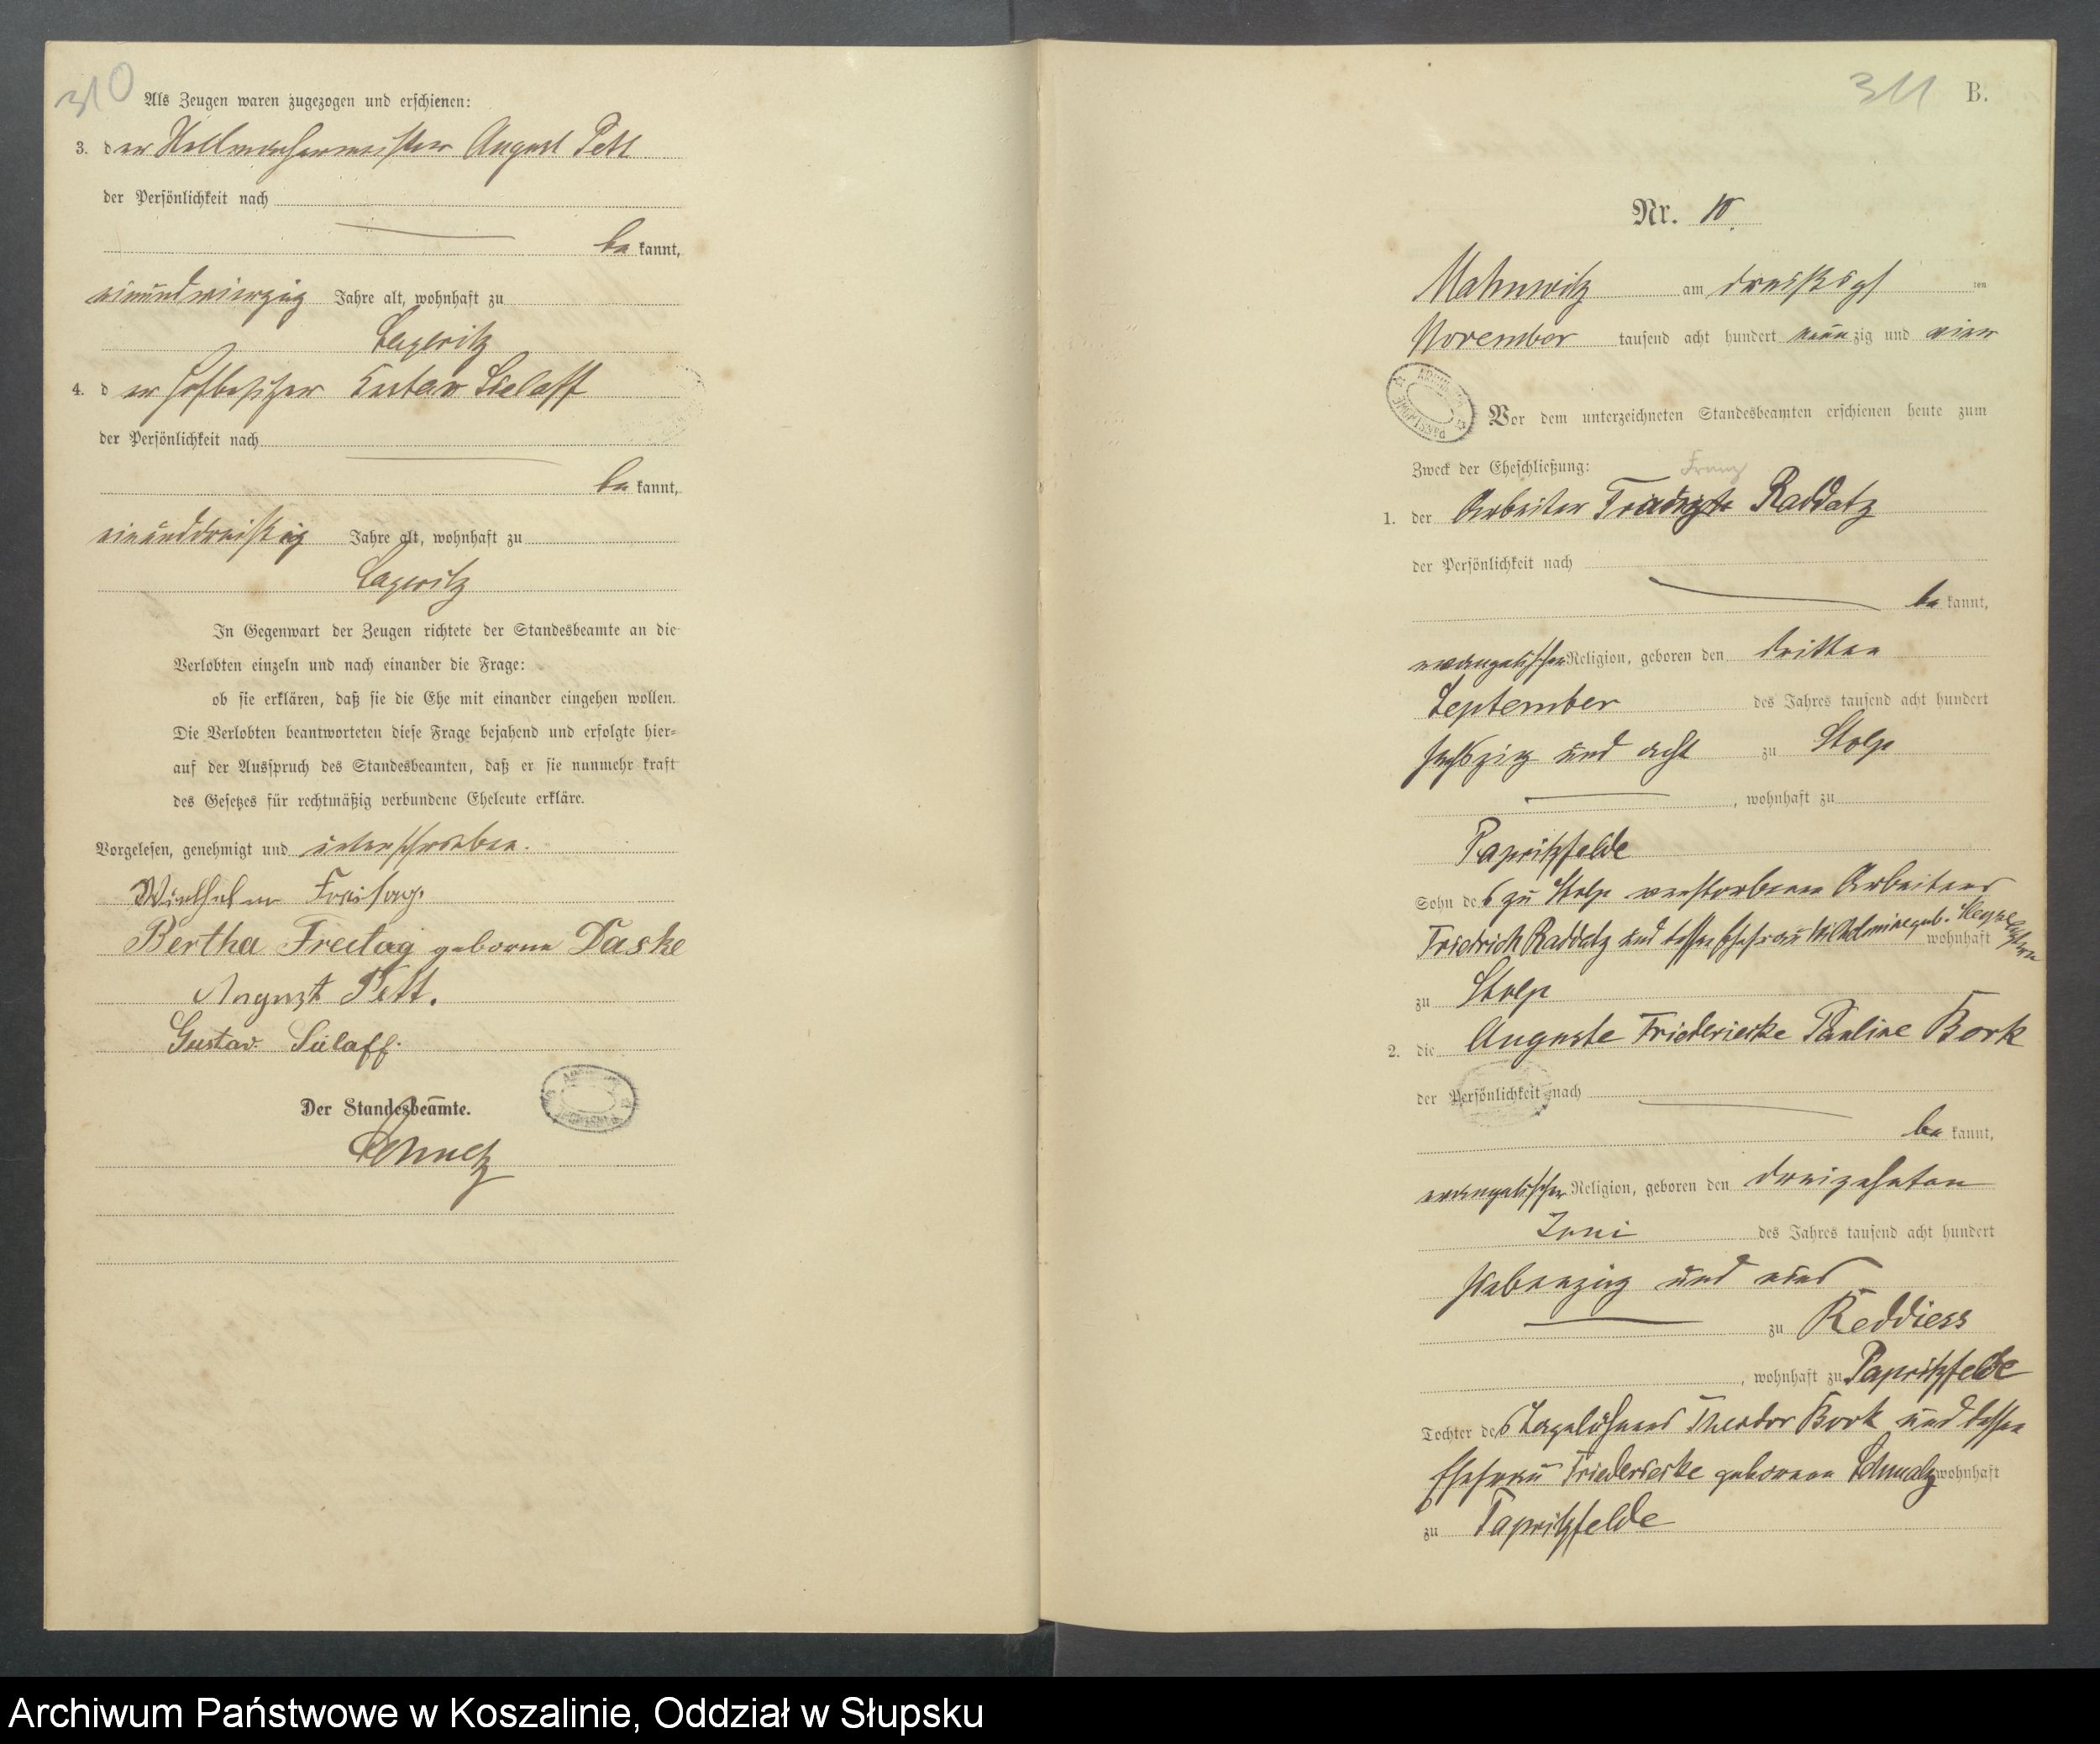 310
Als Zeugen waren zugezogen und erschienen:
3. der Stellmachermeister August Pett
der Persönlichkeit nach
bekannt,
einundvierzig Jahre alt, wohnhaft zu
Zezenow
4. der Hofbesitzer Gustav Sielaff
der Persönlichkeit nach
bekannt,
einunddreißig Jahre alt, wohnhaft zu
In Gegenwart der Zeugen richtete der Standesbeamte an die
Verlobten einzeln und nach einander die Frage:
ob sie erklären, daß sie die Ehe mit einander eingehen wollen.
Die Verlobten beantworteten diese Frage bejahend und erfolgte hier-
auf der Ausspruch des Standesbeamten, daß er sie nunmehr kraft
des Gesetzes für rechtmäßig verbundene Eheleute erkläre.
Vorgelesen, genehmigt und unterschrieben.
Wielhelm Freitag.
Bertha Freitag geborne Paske
August Pett.
Gustav Sielaff.
Der Standesbeamte.
311 B.
Nr. 10.
Mahnwitz am dreißigsten
November tausend acht hundert neunzig und vier
Vor dem unterzeichneten Standesbeamten erschienen heute zum
Zweck der Eheschließung:
Franz
1. der Arbeiter Raddatz
der Persönlichkeit nach
bekannt,
evangelischer Religion, geboren den dritten
September des Jahres tausend acht hundert
sechszig und acht zu Stolp
, wohnhaft zu
Papritzfelde
Sohn des zu Stolp verstorbenen Arbeiters
Friedrich Raddatz und dessen Ehefrau Wilhelmine geb. wohnhaft
zu Stolp
2. die Auguste Friederieke Pauline Bork
der Persönlichkeit nach
bekannt,
evangelischer Religion, geboren den dreizehnten
Juni des Jahres tausend acht hundert
siebenzig und eins
zu Reddiess
, wohnhaft zu Papritzfelde
Tochter des Tagelöhners Theodor Bork und dessen
Ehefrau Friederieke geborene Schmalz wohnhaft
zu Papritzfelde
Archiwum Państwowe w Koszalinie, Oddział w Słupsku